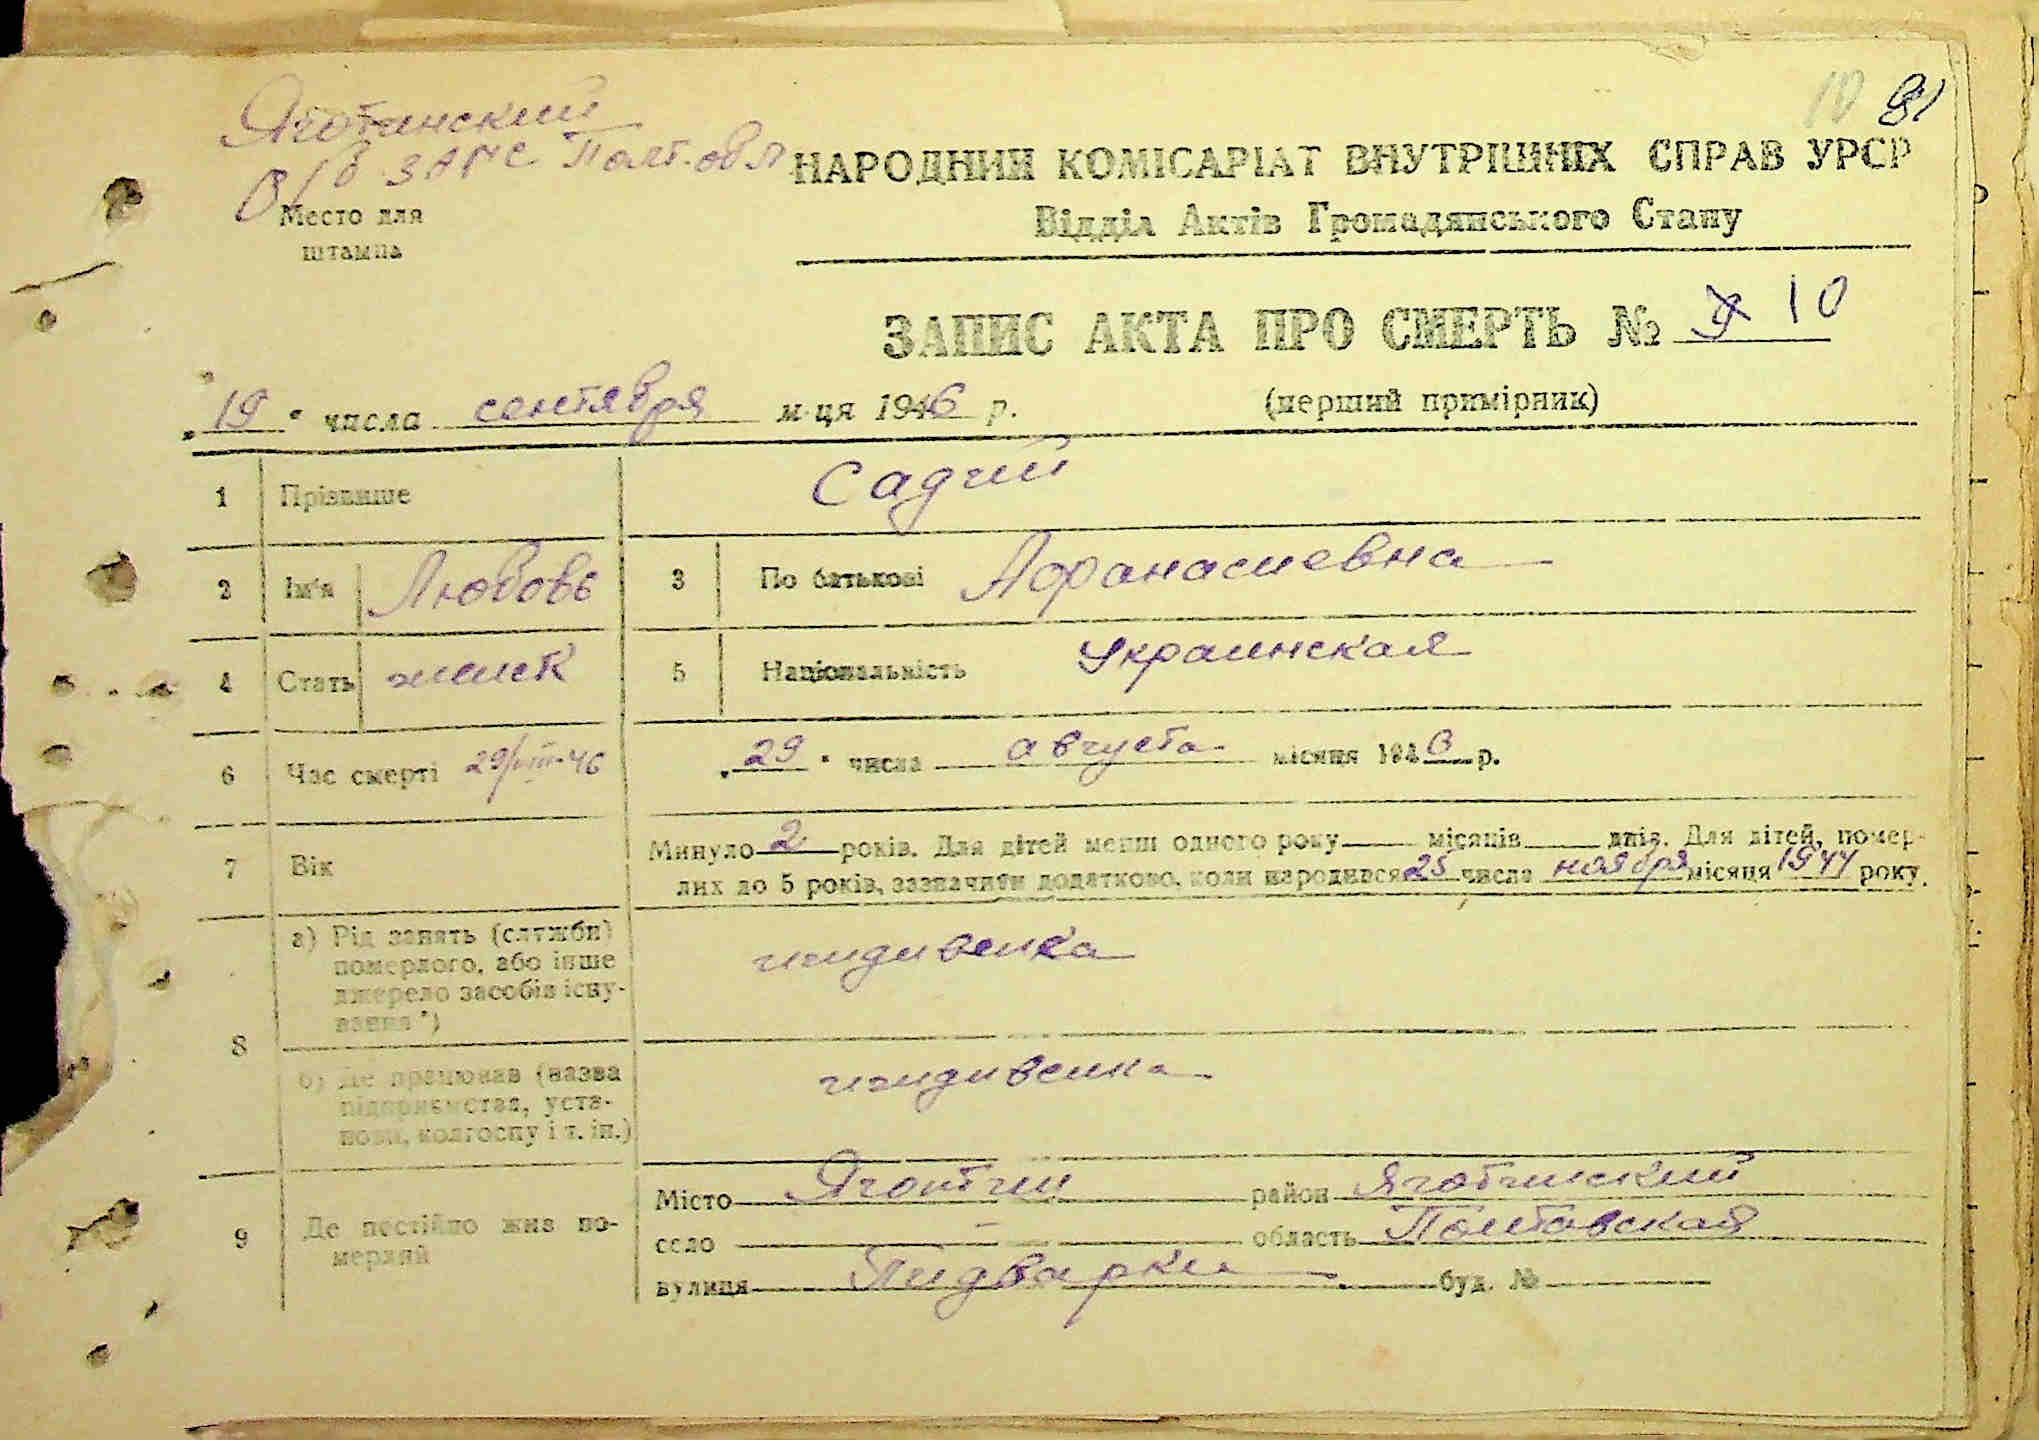 10 81
Яготинский
Р/в ЗАГС Полт. обл
Место для
штампа
НАРОДНИЙ КОМІСАРІАТ ВНУТРІШНІХ СПРАВ УРСР
Відділ Актів Громадянського Стану
ЗАПИС АКТА ПРО СМЕРТЬ № 9 10
„19“ числа сентября м-ця 1946 р.
(перший примірник)
1 Прізвище Садчий
2 Ім'я Любовь 3 По батькові Афанасиевна
4 Стать женск 5 Національність Украинская
6 Час смерті 29/VIII-46 „29“ числа августа місяця 1946 р.
7 Вік Минуло 2 років. Для дітей менш одного року — місяців — днів. Для дітей, помер-
лих до 5 років, зазначити додатково, коли народився 25 числа ноября місяця 1944 року.
8 а) Рід занять (служби)
померлого, або інше
джерело засобів існу-
вання*)
иждивенка
б) Де працював (назва
підприємства, уста-
нови, колгоспу і т. ін.)
иждивенка
9 Де постійно жив по-
мерлий
Місто Яготин район Яготинский
село — область Полтавская
вулиця Пидварки буд. №